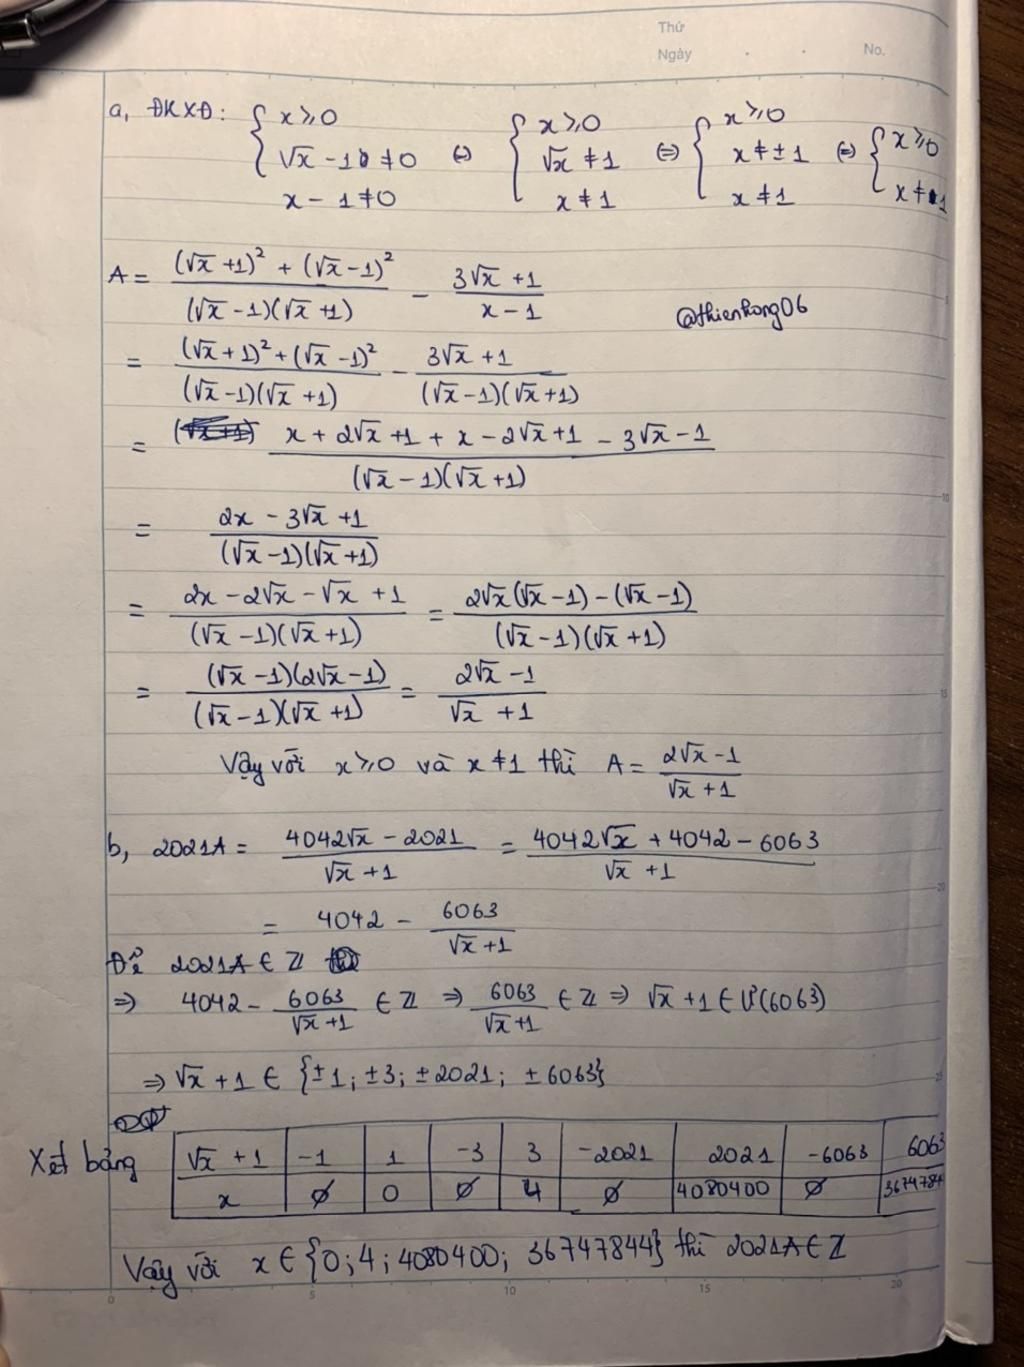 Thứ
Ngày . . No.
a, ĐKXĐ: { x ⩾ 0 ; √x - 1 ≠ 0 ; x - 1 ≠ 0 (=) { x ⩾ 0 ; √x ≠ 1 ; x ≠ 1 (=) { x ⩾ 0 ; x ≠ ± 1 ; x ≠ 1 (=) { x ⩾ 0 ; x ≠ 1
A = ((√x + 1)² + (√x - 1)²) / ((√x - 1)(√x + 1)) - (3√x + 1) / (x - 1)
@thienhong06
= ((√x + 1)² + (√x - 1)²) / ((√x - 1)(√x + 1)) - (3√x + 1) / ((√x - 1)(√x + 1))
= (x + 2√x + 1 + x - 2√x + 1 - 3√x - 1) / ((√x - 1)(√x + 1))
= (2x - 3√x + 1) / ((√x - 1)(√x + 1))
= (2x - 2√x - √x + 1) / ((√x - 1)(√x + 1)) = (2√x(√x - 1) - (√x - 1)) / ((√x - 1)(√x + 1))
= ((√x - 1)(2√x - 1)) / ((√x - 1)(√x + 1)) = (2√x - 1) / (√x + 1)
Vậy với x ⩾ 0 và x ≠ 1 thì A = (2√x - 1) / (√x + 1)
b, 2021A = (4042√x - 2021) / (√x + 1) = (4042√x + 4042 - 6063) / (√x + 1)
= 4042 - 6063 / (√x + 1)
Để 2021A ∈ Z
⇒ 4042 - 6063 / (√x + 1) ∈ Z ⇒ 6063 / (√x + 1) ∈ Z ⇒ √x + 1 ∈ Ư(6063)
⇒ √x + 1 ∈ {±1; ±3; ±2021; ±6063}
Xét bảng
√x + 1 | -1 | 1 | -3 | 3 | -2021 | 2021 | -6063 | 6063
x | ∅ | 0 | ∅ | 4 | ∅ | 4080400 | ∅ | 3674784
Vậy với x ∈ {0; 4; 4080400; 36747844} thì 2021A ∈ Z
0 5 10 15 20